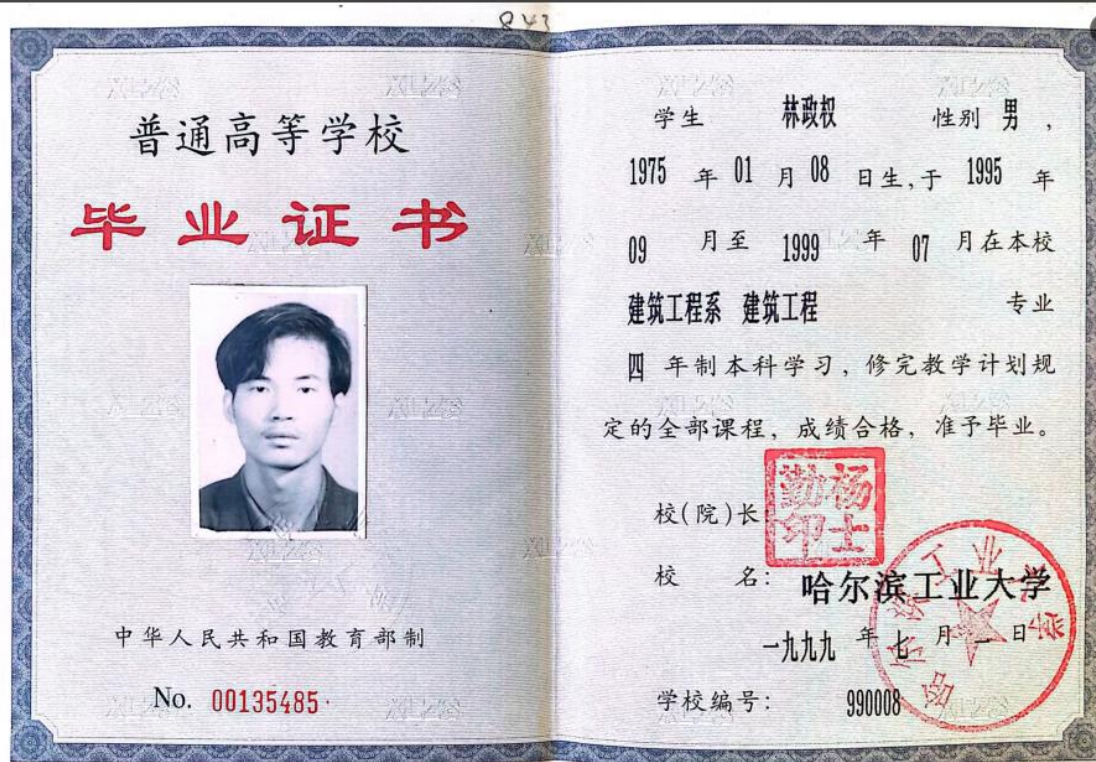 843
普通高等学校
毕业证书
中华人民共和国教育部制
No. 00135485
学生 林政权 性别 男，
1975 年 01 月 08 日生,于 1995 年
09 月至 1999 年 07 月在本校
建筑工程系 建筑工程 专业
四 年制本科学习，修完教学计划规
定的全部课程，成绩合格，准予毕业。
校(院)长:
杨士勤印
校 名: 哈尔滨工业大学
哈尔滨工业大学
一九九九 年 七 月 日
学校编号: 990008